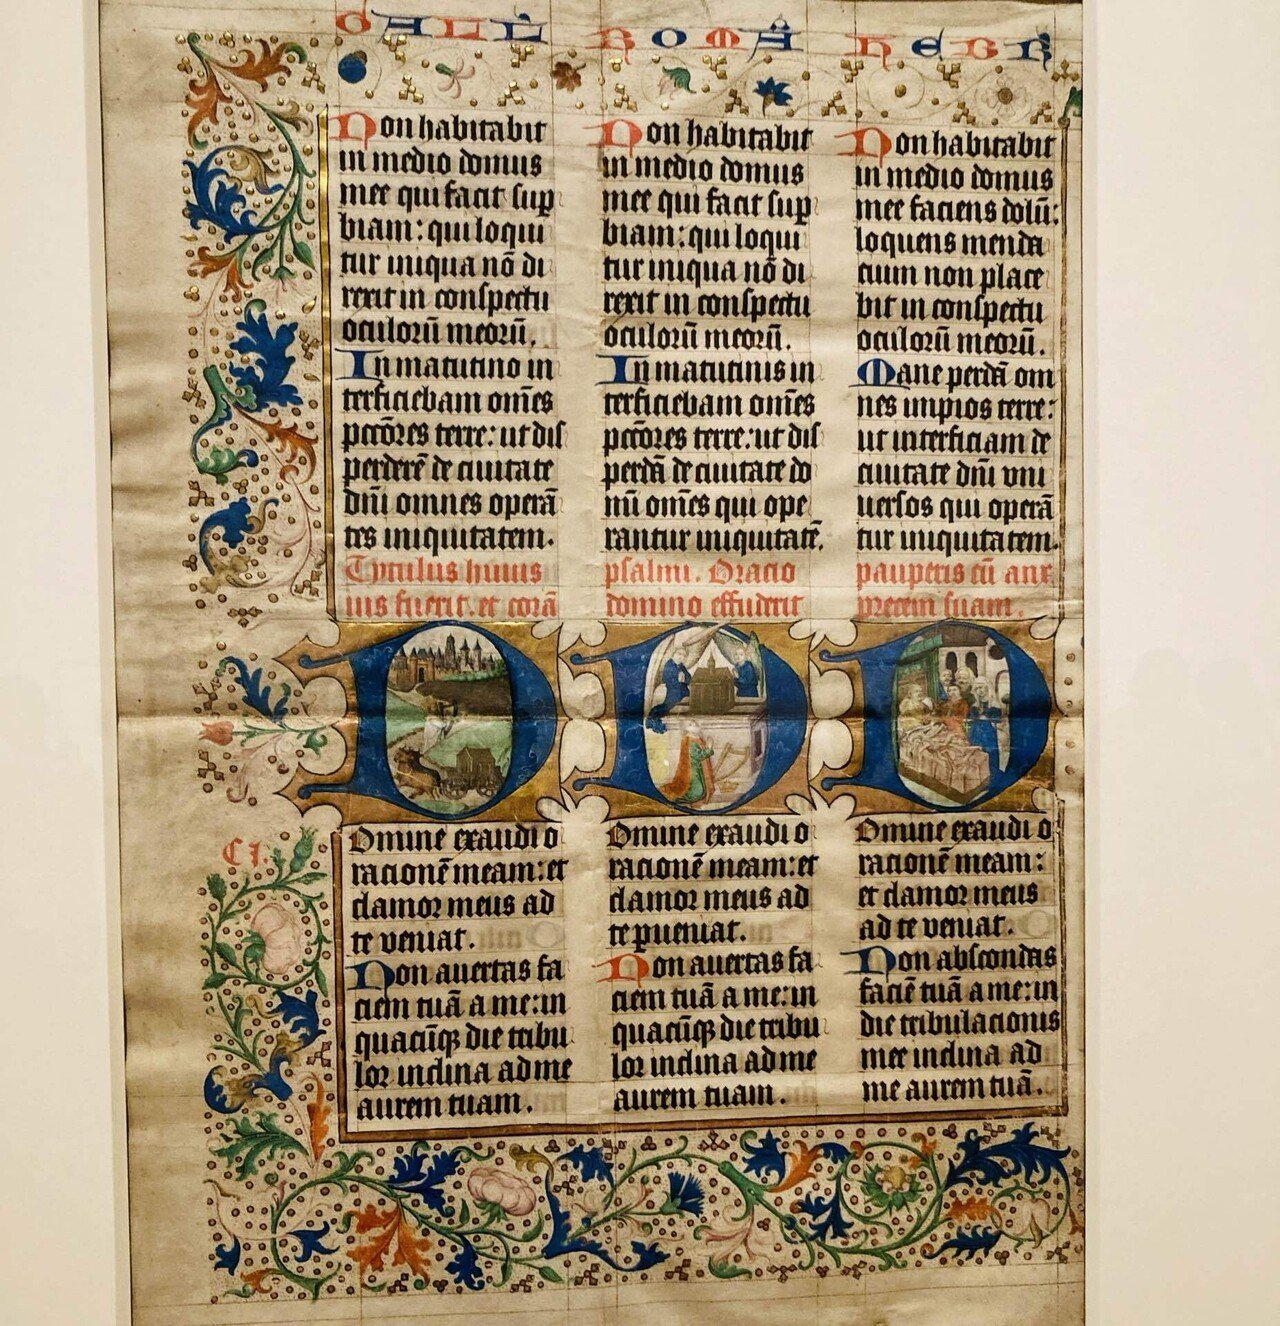 GALL ROMA HEBR
Non habitabit
in medio domus
mee qui facit sup
biam: qui loqui
tur iniqua nō di
rexit in conspectu
oculorū meorū.
In matutino in
terficiebam om̄es
pcc̄ores terre: ut dis
perderē de ciuitate
dn̄i omnes operā
tes iniquitatem.
Non habitabit
in medio domus
mee qui facit sup
biam: qui loqui
tur iniqua nō di
rexit in conspectu
oculorū meorū.
In matutinis in
terficiebam om̄es
pcc̄ores terre: ut dis
perdā de ciuitate do
mī om̄es qui ope
rantur iniquitatē.
Non habitabit
in medio domus
mee faciens dolū:
loquens menda
cium non place
bit in conspectu
oculorū meorū.
Mane perdā om
nes impios terre:
ut interficiam de
ciuitate dn̄i vni
uersos qui operā
tur iniquitatem.
Tytulus huius psalmi. Oracio pauperis cū anx
ius fuerit. et corā domino effuderit precem suam.
CI.
Domine exaudi o
racionē meam: et
clamor meus ad
te veniat.
Non auertas fa
ciem tuā a me: in
quacūqꝫ die tribu
lor inclina ad me
aurem tuam.
Domine exaudi o
racionē meam: et
clamor meus ad
te ꝑueniat.
Non auertas fa
ciem tuā a me: in
quacūqꝫ die tribu
lor inclina ad me
aurem tuam.
Domine exaudi o
racionē meam:
et clamor meus
ad te veniat.
Non abscondas
faciē tuā a me: in
die tribulacionis
mee inclina ad
me aurem tuā.